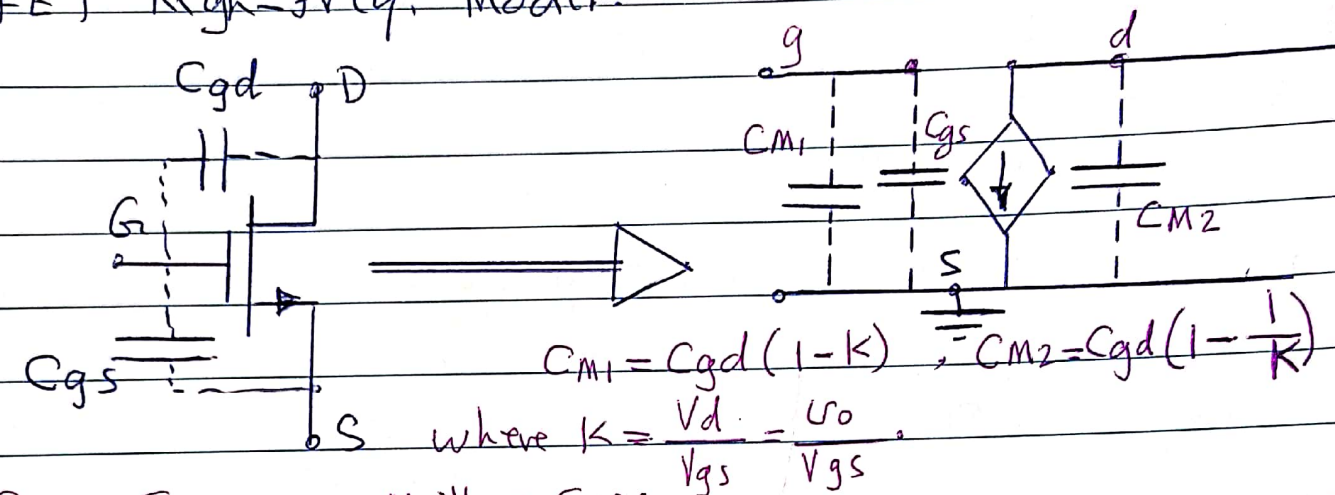 FET High-freq. Model.
Cgd D
G
Cgs
S
g d
CM1 Cgs
CM2
S
CM1 = Cgd (1-K) , CM2 = Cgd (1 - 1/K)
where K = Vd/Vgs = vo/Vgs .